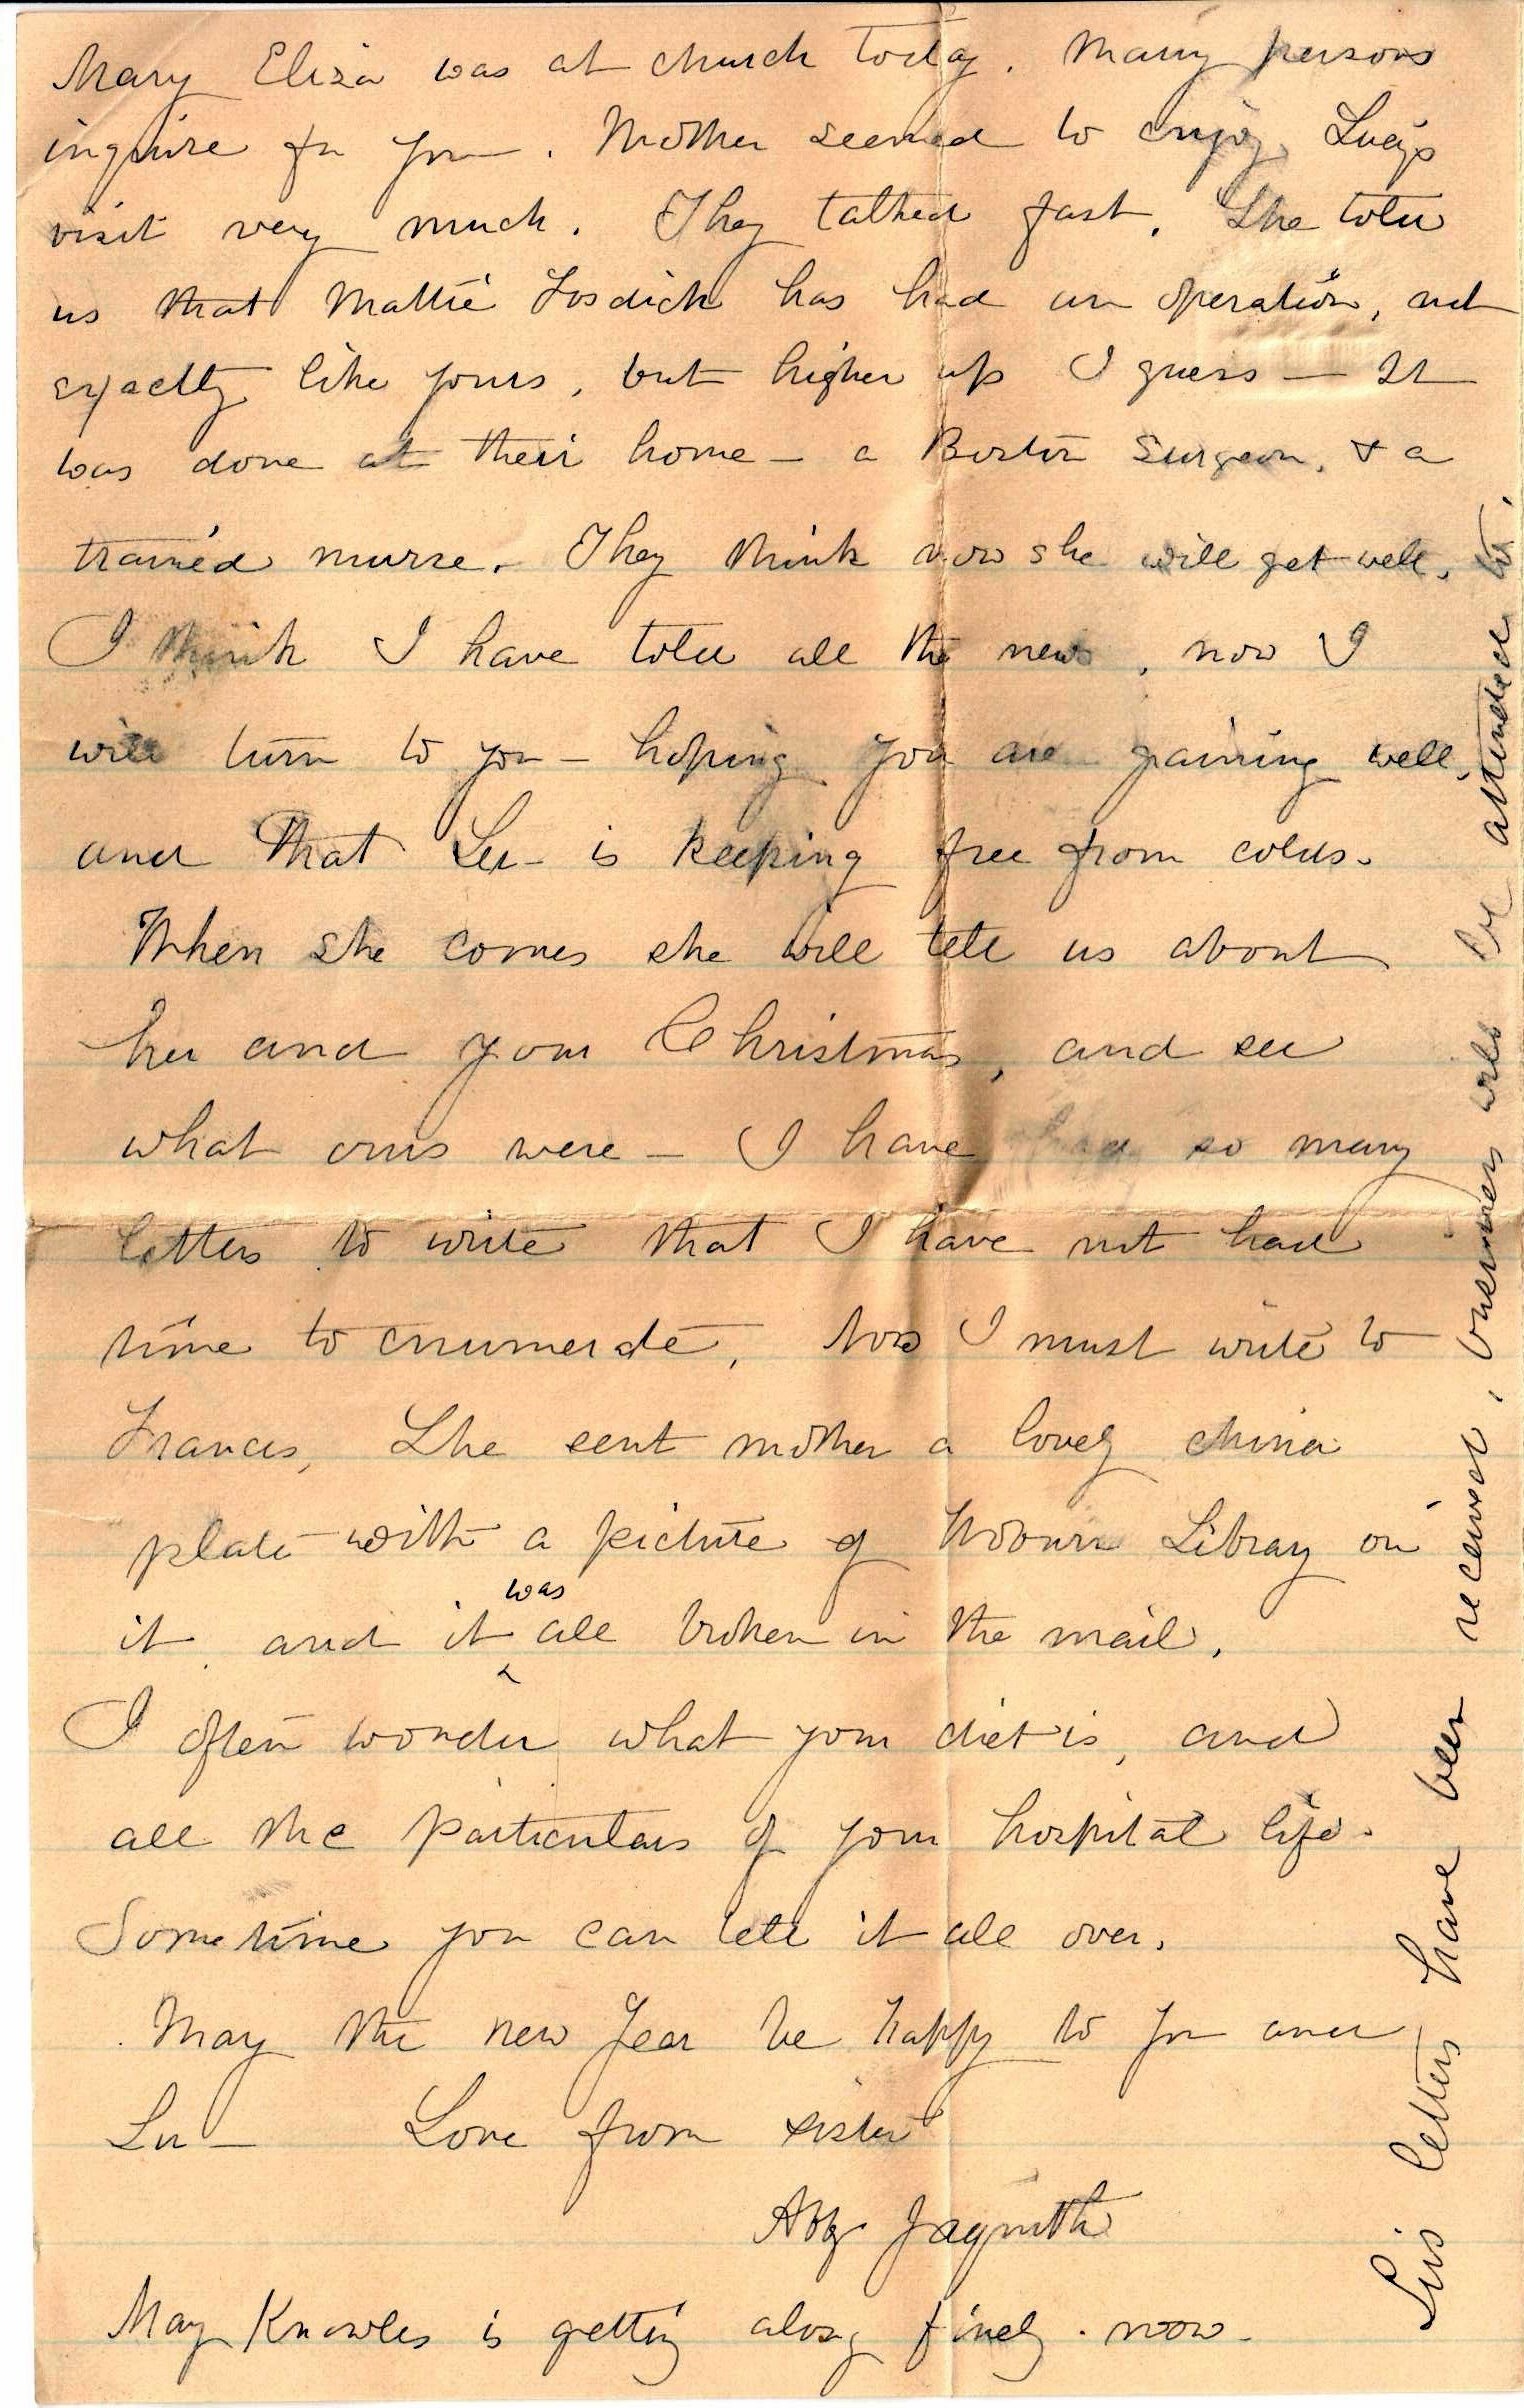 Mary Eliza was at church today. Many persons
inquire for you. Mother seemed to enjoy Lucy's
visit very much. They talked fast. She told
us that Mattie Fosdick has had an operation, not
exactly like yours, but higher up I guess — It
was done at their home — a Boston Surgeon, & a
trained nurse. They think now she will get well.
I think I have told all the news, now I
will turn to you — hoping you are gaining well,
and that Lu — is keeping free from colds.
When she comes she will tell us about
her and your Christmas, and see
what ours were — I have had so many
letters to write that I have not had
time to enumerate. Now I must write to
Frances, She sent mother a lovely china
plate with a picture of Woburn Library on
it and it was all broken in the mail.
I often wonder what your diet is, and
all the particulars of your hospital life.
Sometime you can tell it all over.
May the new Year be happy to you and
Lu — Love from sister
Abby Jaquith
May Knowles is getting along finely now —
Lu's letters have been received, business will be attended to.